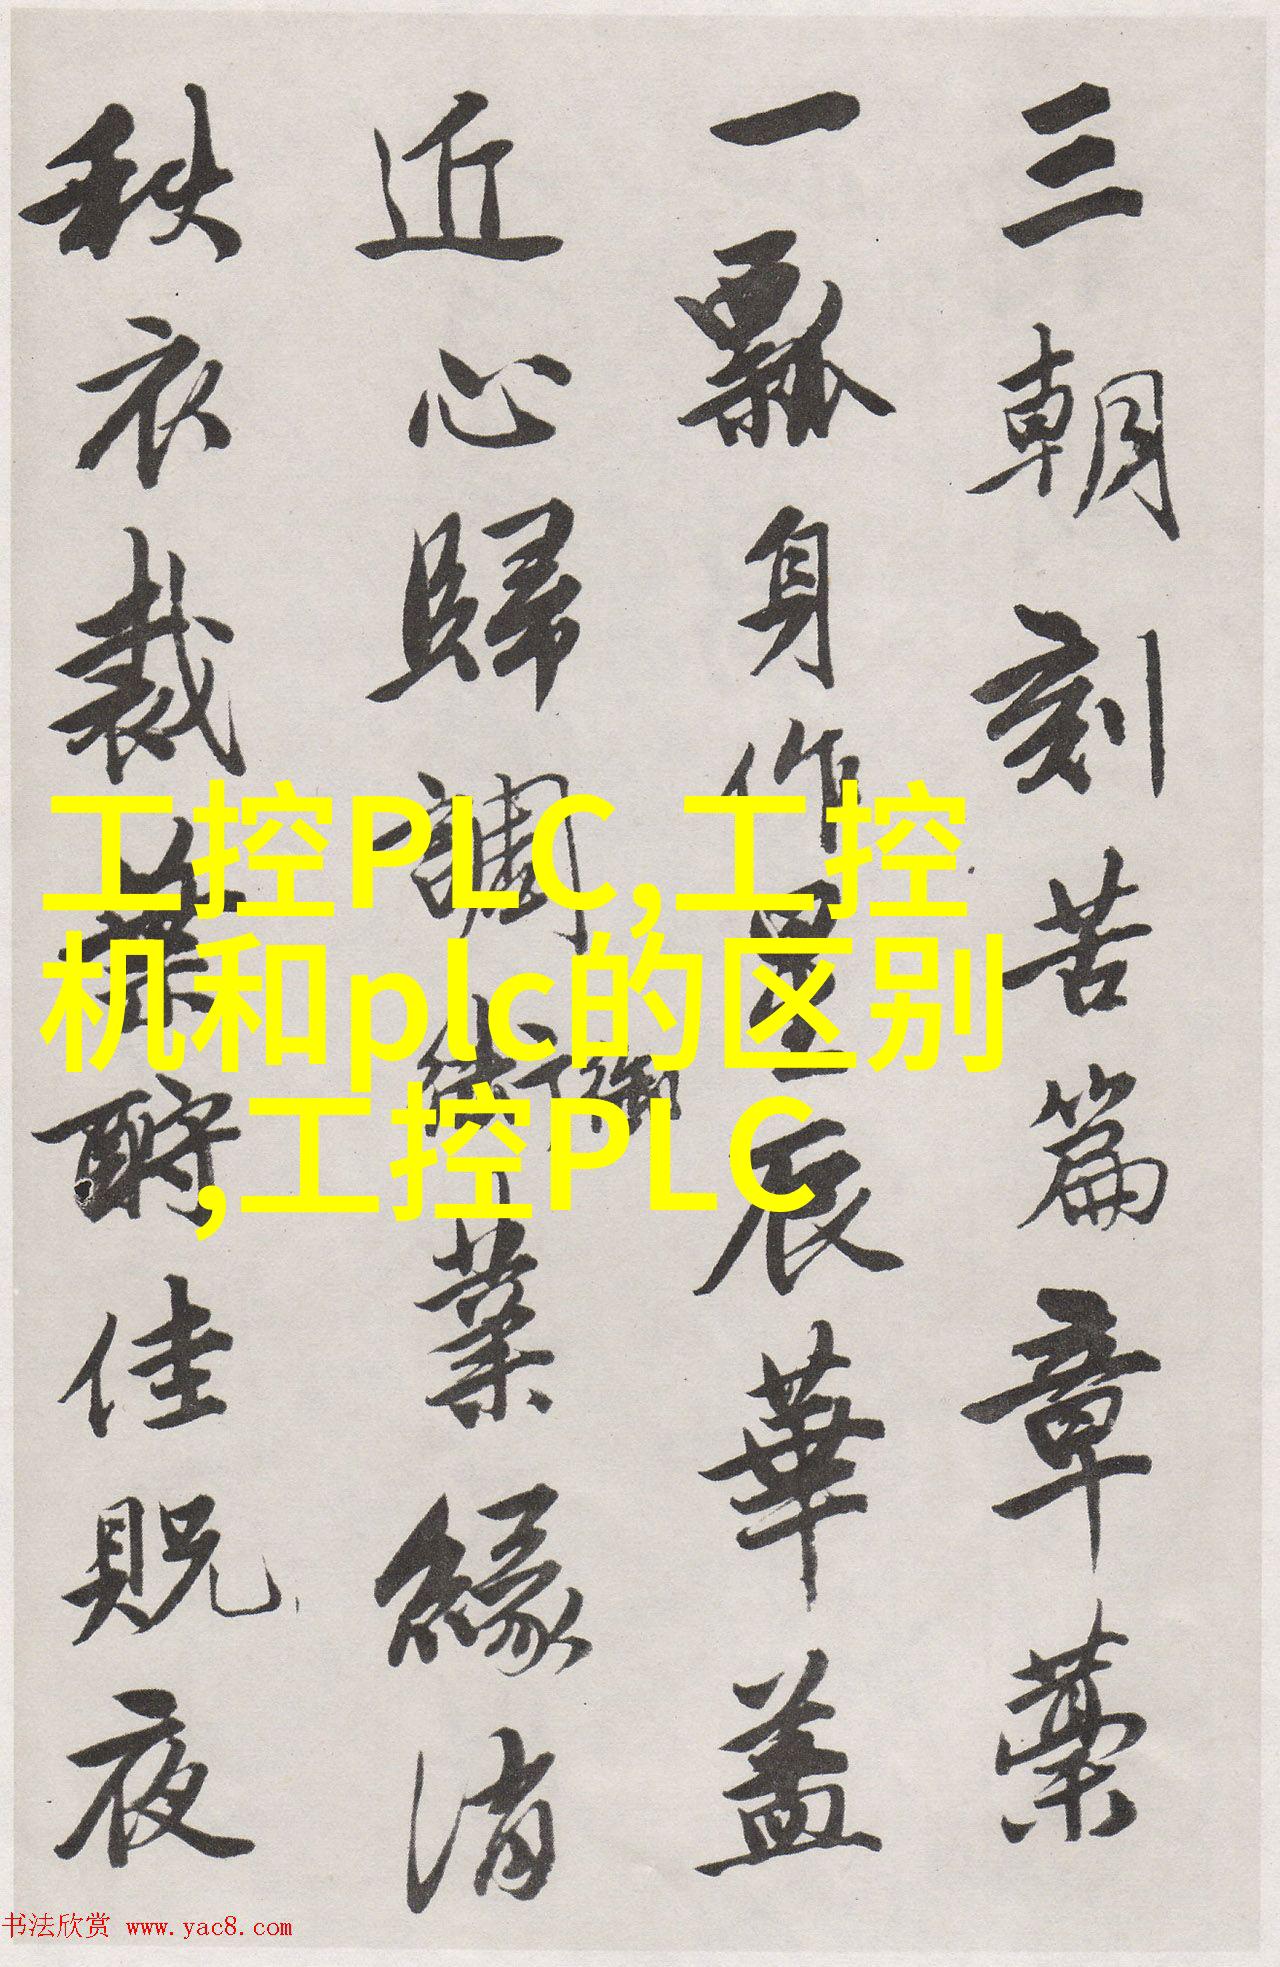 三朝刻苦篇章藁
一瓢身作星辰華蓋
近心歸調御業緣消
秋衣裁葉酧佳貺夜
工控PLC,工控
机和plc的区别
,工控PLC
书法欣赏 www.yac8.com